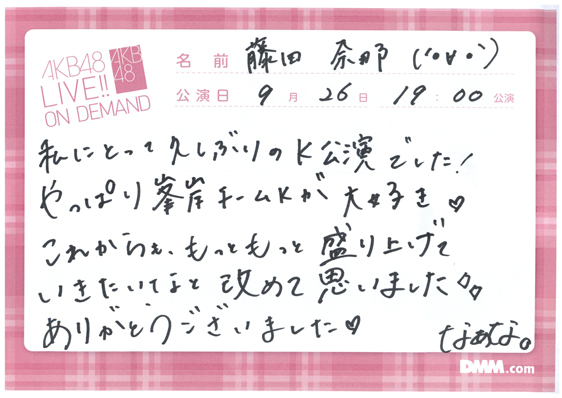 AKB48
LIVE!!
ON DEMAND
AKB
48
名前 藤田 奈那 (´•∀•`)
公演日 9月26日 19:00公演
私にとって久しぶりのK公演でした!
やっぱり峯岸チームKが大好き♡
これからも、もっともっと盛り上げて
いきたいなと改めて思いました
ありがとうございました♡
なぁな。
DMM.com